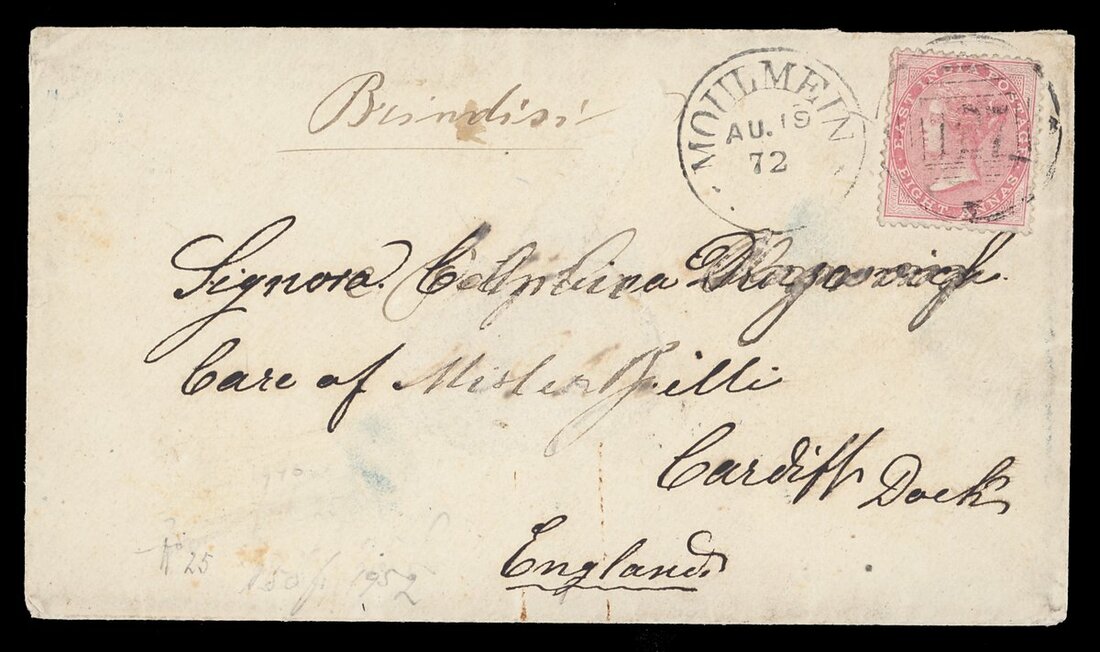 Brindisi
MOULMEIN
AU. 19
72
EAST INDIA POSTAGE
EIGHT ANNAS
Signora
Care of Mister Gilli
Cardiff Dock
England
25
150 1952